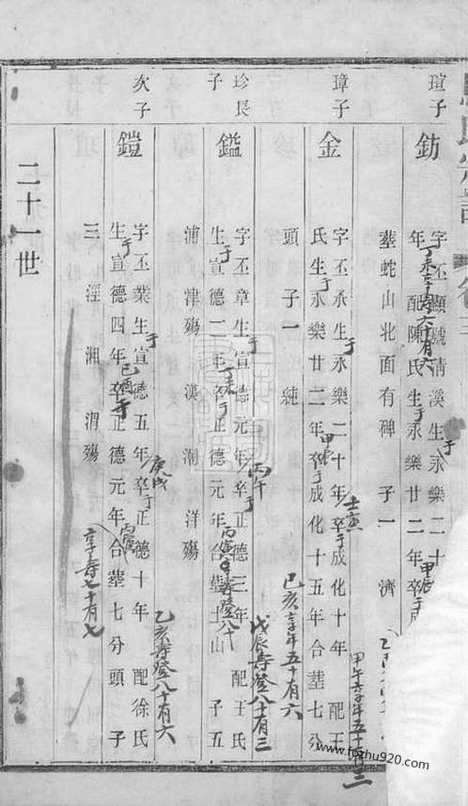 瑄子
鈁
字丕顯號清溪生永樂二十
年配陳氏生永樂廿二年卒
塟蛇山北面有碑 子一 濟
璋子
金
字丕承生永樂二十年卒成化十年 配王
氏生永樂廿二年卒成化十五年合塟七分
頭 子一 純
珍長
子
鎰
字丕章生宣德元年卒正德三年 配王氏
生宣德二年卒正德元年合塟土山 子五
浦 津殤 漢 潮 洋殤
次子
鎧
字丕業生宣德五年卒正德十年 配徐氏
生宣德四年卒正德元年合塟七分頭 子
三 涇 湘 渭殤
二十一世
壬寅
甲午享年五十有三
甲辰
己亥享年五十有六
丙午
戊辰壽登八十有三
丁未
丙寅壽登八十
庚戌
乙亥壽登八十有六
己酉
丙寅
享壽七十有七
www.fozhu920.com